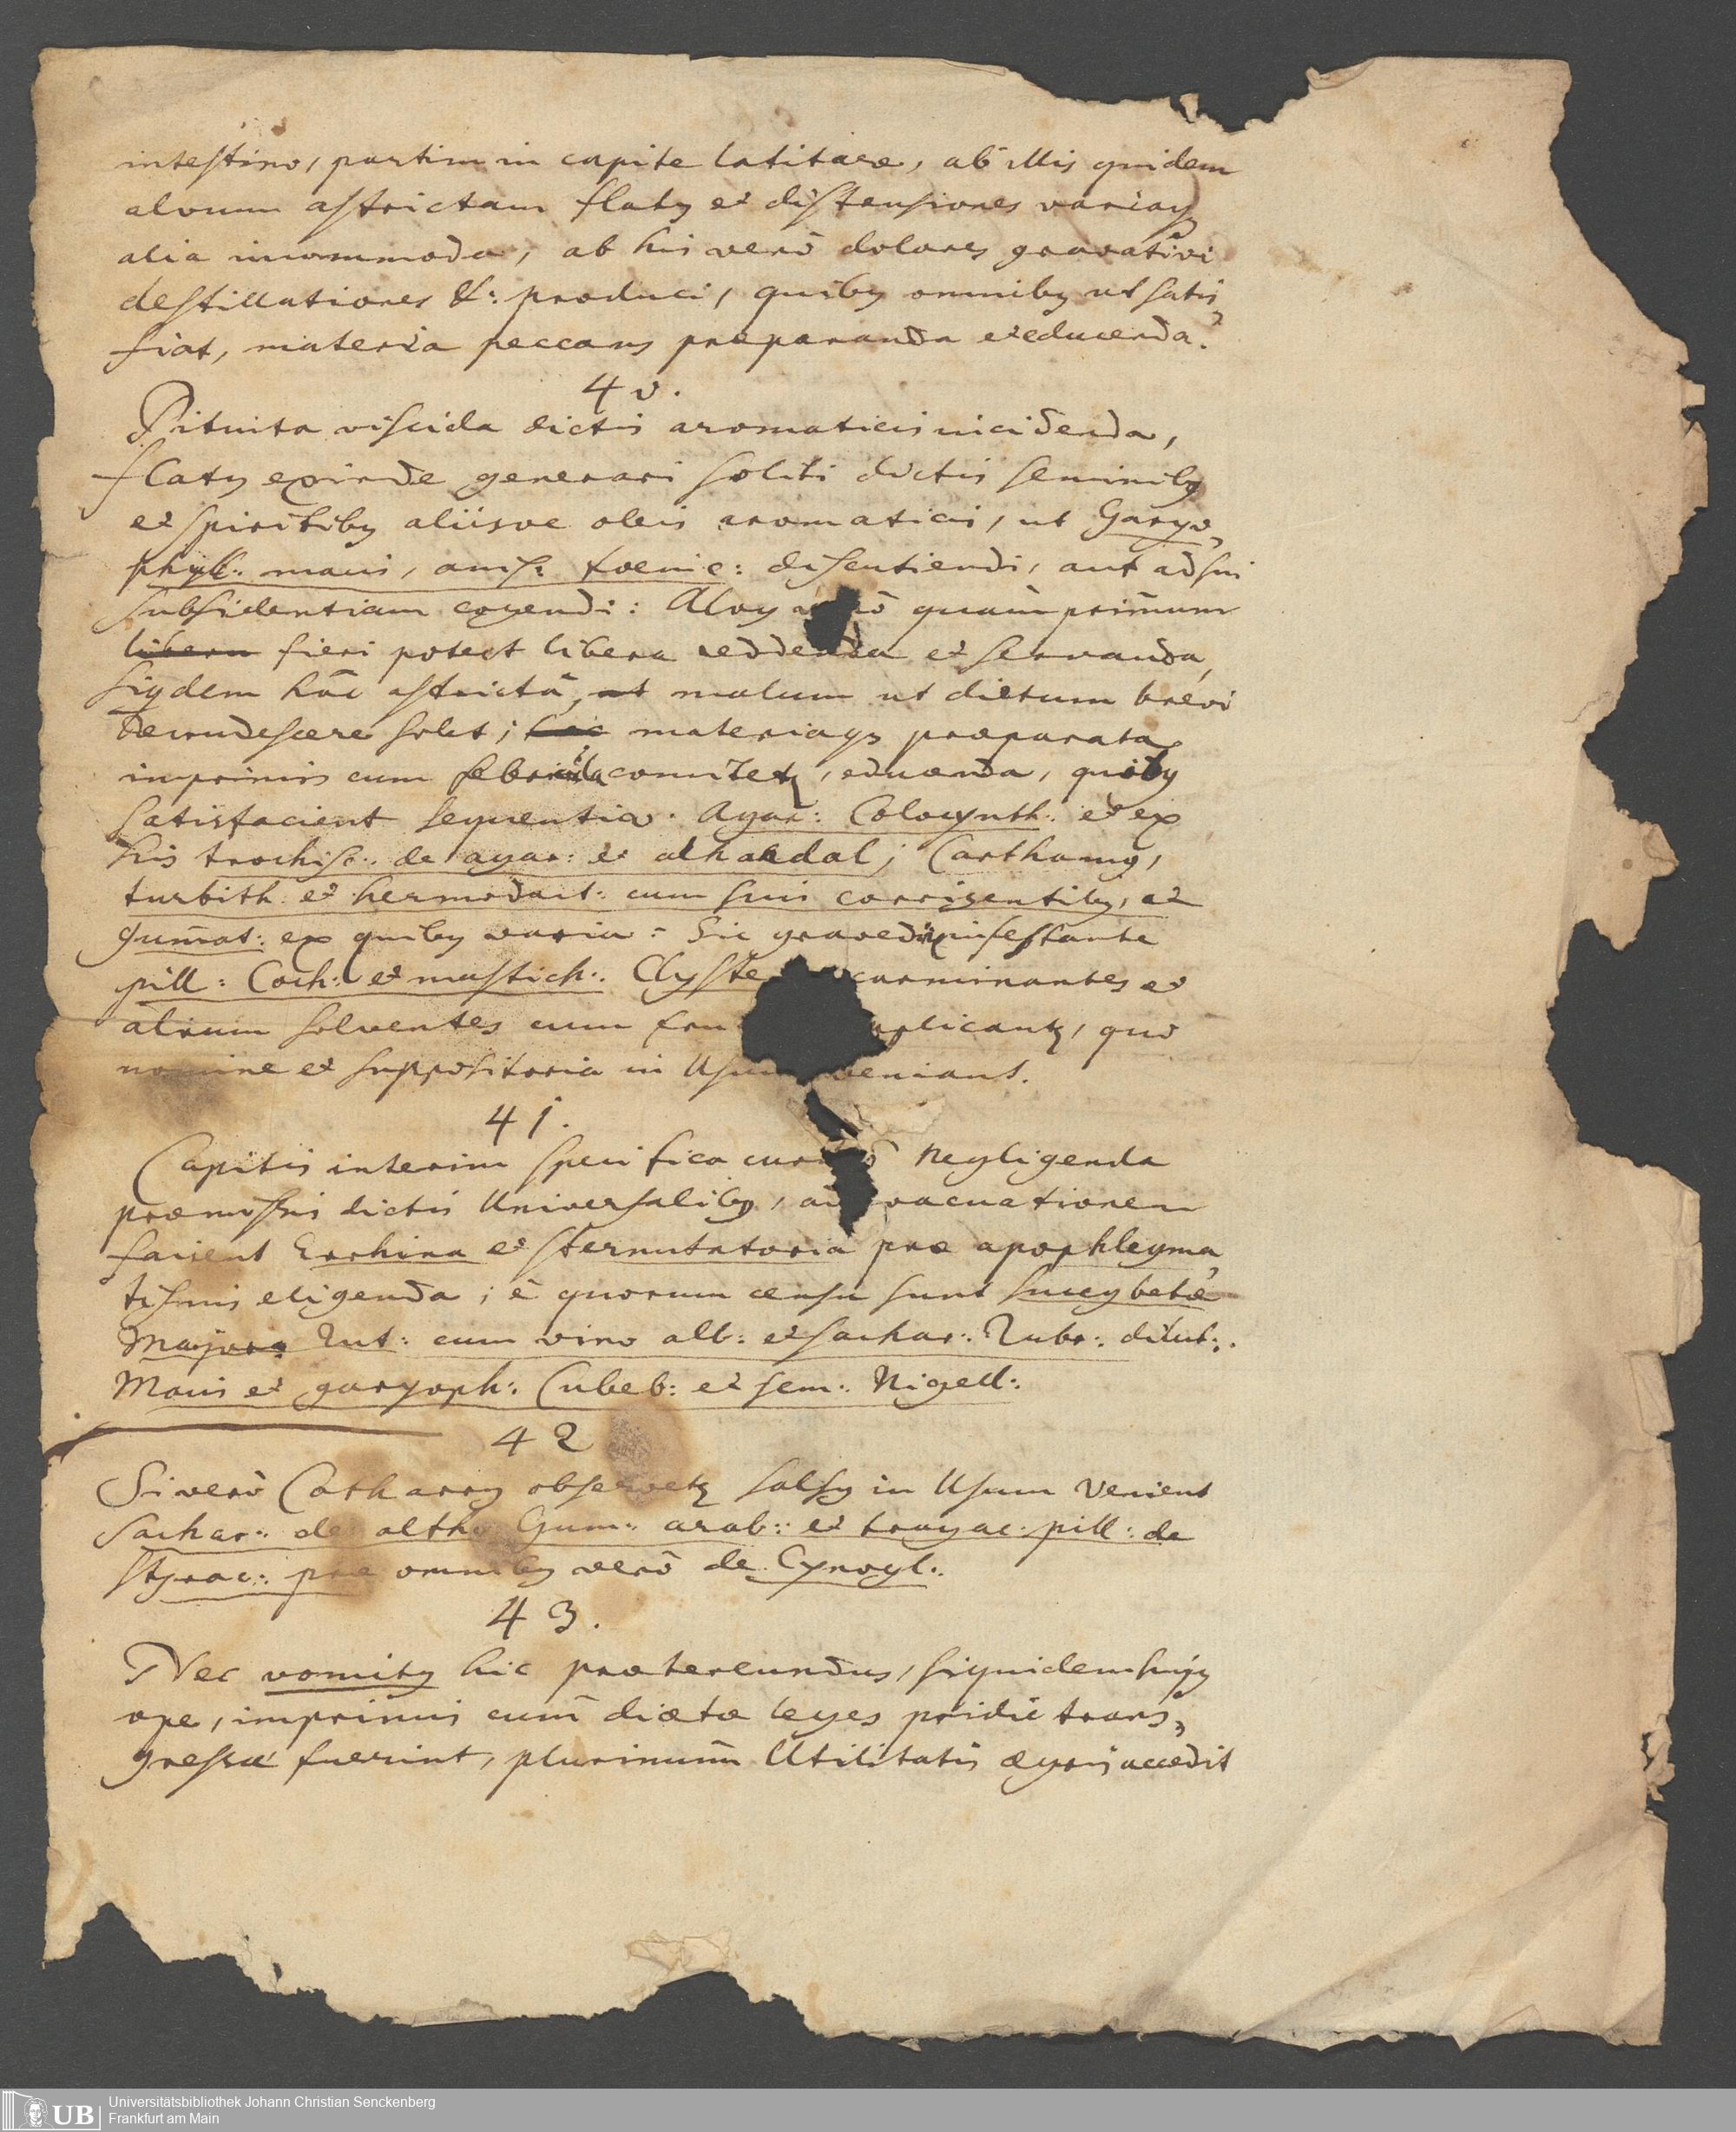 intestino, partim in capite latitare, ab illis quidem
alvum astrictam flatus et distensiones variasq
alia incommoda, ab his verò dolores gravativi
destillationes &: produci, quibus omnibus ut satis,
fiat, materia peccans præparanda et educenda.
40.
Pituita viscida dictis aromaticis incidenda,
flatus exinde generari soliti dictis seminibus
et spiritibus aliisve oleis aromaticis, ut Garyo,
phyll: macis, anis: foenic: discutiendi, aut ad sui
subsidentiam cogendi: Alvus verò quam primum
libera fieri potest libera reddenda et servanda,
siqudem hâc astrictâ, ut malum ut dictum brevi
recrudescere solet; hac materiaqz præparata
imprimis cum febricula comitetur, educenda, quibus
satisfacient sequentia. Agar: Colocynth: et ex
his trochisc: de agar: et alhandal; Carthamus,
turbith et hermodact: cum suis corrigentibus, et
gum̄at: ex quibus varia: Sic gravedine infestante
pill: Coch: et mastich: Clyste carminantes et
alvum solventes cum fru plicantur, quo
nomine et suppositoria in Usum veniant.
41.
Capitis interim specifica cura nō negligenda
præmissis dictis Universalibus, ad vacuationem
facient Errhina et sternutatoria præ apophlegma,
tismis eligenda; è quorum censu sunt succus betæ
Major: Rut: cum vino alb: et sachar: Rubr: dilut:.
Macis et garyoph: Cubeb: et sem: Nigell:
42
Si verò Catharrus observetur salsus in Usum Venient
sachar: de alth Gum: arab: et tragac: pill: de
styrac: præ omnibus verò de Cynogl:
43.
Nec vomitus hic prætereundus, siquidem hujus
ope, imprimis cum̄ diætæ leges pridiè trans,
gressæ fuerint, plurimum Utilitatis ægris accedit
Universitätsbibliothek Johann Christian Senckenberg
Frankfurt am Main
UB